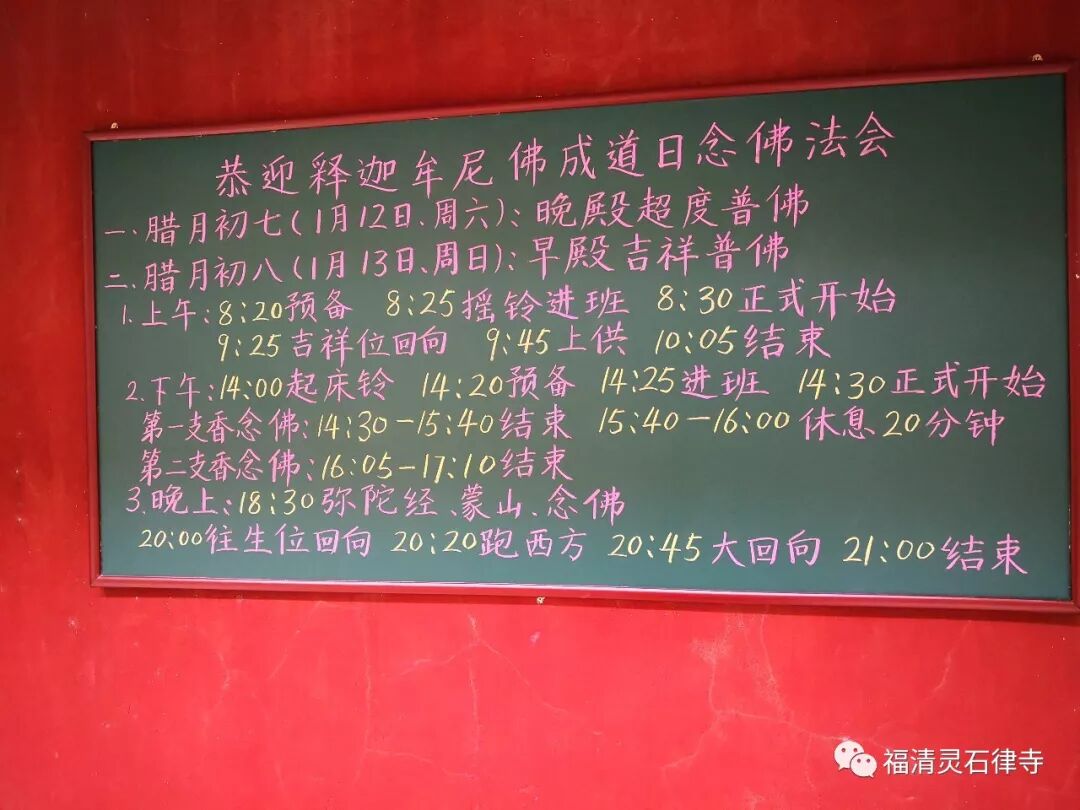 恭迎释迦牟尼佛成道日念佛法会
一、腊月初七(1月12日、周六):晚殿超度普佛
二、腊月初八(1月13日、周日):早殿吉祥普佛
1.上午:8:20预备 8:25摇铃进班 8:30正式开始
9:25吉祥位回向 9:45上供 10:05结束
2.下午:14:00起床铃 14:20预备 14:25进班 14:30正式开始
第一支香念佛:14:30-15:40结束 15:40-16:00休息20分钟
第二支香念佛:16:05-17:10结束
3.晚上:18:30弥陀经、蒙山、念佛
20:00往生位回向 20:20跑西方 20:45大回向 21:00结束
福清灵石律寺